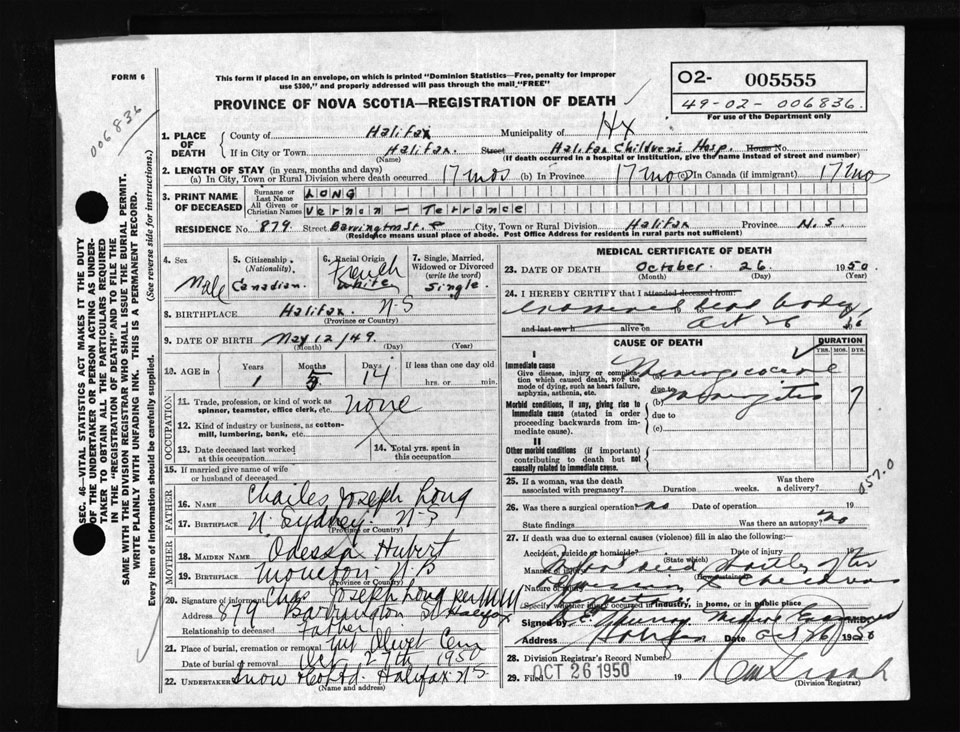 FORM 6
This form if placed in an envelope, on which is printed "Dominion Statistics—Free, penalty for improper
use $300," and properly addressed will pass through the mail "FREE"
O2- 005555
49-02-006836.
For use of the Department only
PROVINCE OF NOVA SCOTIA—REGISTRATION OF DEATH
006836
1. PLACE OF DEATH
County of Halifax Municipality of Hx
If in City or Town Halifax. Street Halifax Children's Hosp. House No.
(Name) (If death occurred in a hospital or institution, give the name instead of street and number)
2. LENGTH OF STAY (in years, months and days)
(a) In City, Town or Rural Division where death occurred 17 mos (b) In Province 17 mo (c) In Canada (if immigrant) 17 mo
3. PRINT NAME OF DECEASED
Surname or Last Name LONG
All Given or Christian Names Vernon - Terrance
RESIDENCE No. 879 Street Barrington St. City, Town or Rural Division Halifax Province N.S.
(Residence means usual place of abode. Post Office Address for residents in rural parts not sufficient)
4. Sex Male
5. Citizenship (Nationality) Canadian
6. Racial Origin French White
7. Single, Married, Widowed or Divorced (write the word) Single
8. BIRTHPLACE Halifax. N-S
(Province or Country)
9. DATE OF BIRTH May 12/49
(Month) (Day) (Year)
10. AGE in Years Months Days If less than one day
1 5 14 hrs. or min.
OCCUPATION
11. Trade, profession or kind of work as
spinner, teamster, office clerk, etc. none
12. Kind of industry or business, as cotton-
mill, lumbering, bank, etc.
13. Date deceased last worked
at this occupation
14. Total yrs. spent in
this occupation
15. If married give name of wife
or husband of deceased
FATHER
16. NAME Charles Joseph Long
17. BIRTHPLACE N. Sydney. N-S
(Province or Country)
MOTHER
18. MAIDEN NAME Odessa Hubert
19. BIRTHPLACE Moncton. N.B
(Province or Country)
20. Signature of informant Chas Joseph Long per
Address 879 Barrington St Halifax
Relationship to deceased Father
21. Place of burial, cremation or removal Mt Olivet Cem
Date of burial or removal Oct 27th 1950
22. UNDERTAKER Snow & Co Ltd. Halifax N S
(Name and address)
MEDICAL CERTIFICATE OF DEATH
23. DATE OF DEATH October 26 1950
(Month) (Day) (Year)
24. I HEREBY CERTIFY that I attended deceased from:
examined dead body
and last saw h alive on Oct 26
CAUSE OF DEATH
DURATION
YRS. MOS. DYS.
I
Immediate cause
Give disease, injury or complication which caused death, NOT the mode of dying, such as heart failure, asphyxia, asthenia, etc.
Meningococcal
due to
(b) Meningitis
Morbid conditions, if any, giving rise to immediate cause (stated in order proceeding backwards from immediate cause).
due to
(c)
II
Other morbid conditions (if important) contributing to death but not causally related to immediate cause.
057.0
25. If a woman, was the death
associated with pregnancy? Duration weeks. Was there a delivery?
26. Was there a surgical operation? no Date of operation 19
State findings Was there an autopsy? no
27. If death was due to external causes (violence) fill in also the following:
Accident, suicide or homicide? Date of injury 19
(State which)
Manner of
(How sustained)
Nature of injury
Specify whether injury occurred in industry, in home, or in public place
Signed by Murray M.D.
Address Halifax Date Oct 26 1950
28. Division Registrar's Record Number
29. Filed OCT 26 1950 19
(Division Registrar)
SEC. 46—VITAL STATISTICS ACT MAKES IT THE DUTY
OF THE UNDERTAKER OR PERSON ACTING AS UNDER-
TAKER TO OBTAIN ALL THE PARTICULARS REQUIRED
IN THE "REGISTRATION OF DEATH" AND TO FILE THE
SAME WITH THE DIVISION REGISTRAR WHO SHALL ISSUE THE BURIAL PERMIT.
WRITE PLAINLY WITH UNFADING INK. THIS IS A PERMANENT RECORD.
Every item of information should be carefully supplied. (See reverse side for instructions.)